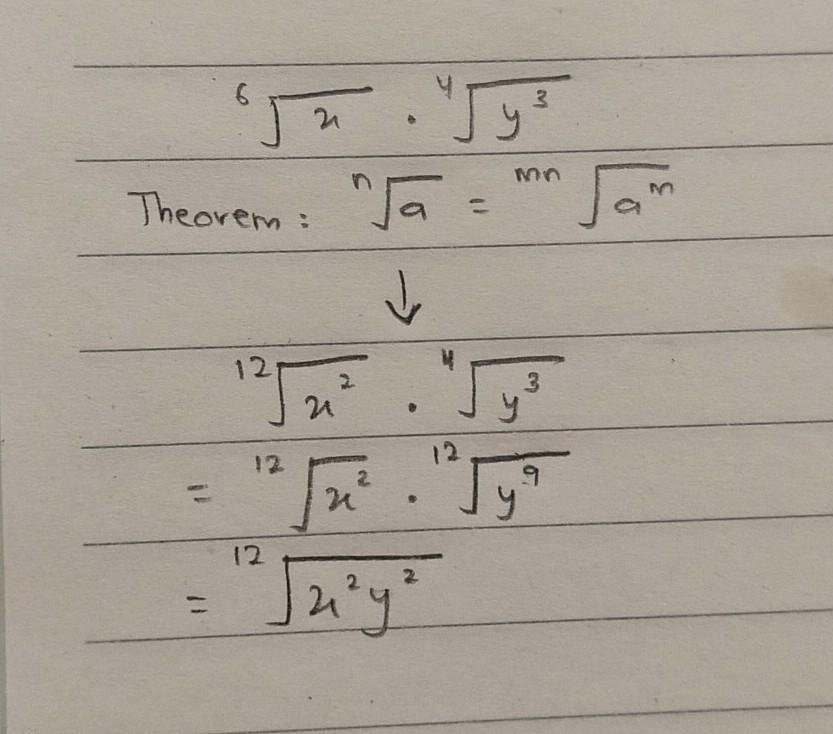 ⁶√x · ⁴√y³
Theorem: ⁿ√a = ᵐⁿ√aᵐ
↓
¹²√x² · ⁴√y³
= ¹²√x² · ¹²√y⁹
= ¹²√x²y²